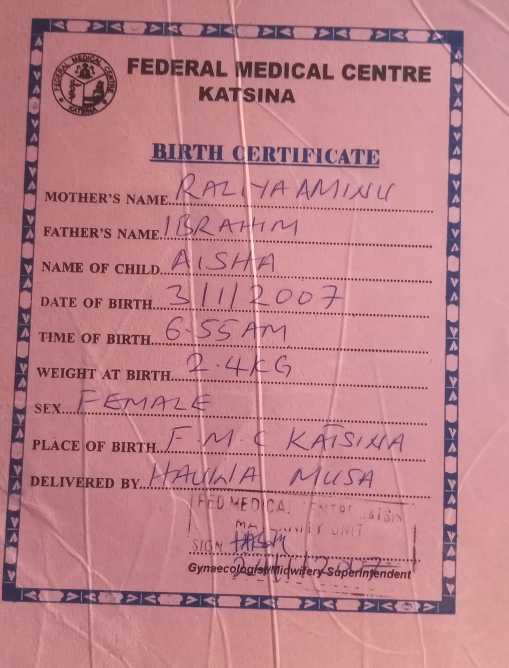 FEDERAL MEDICAL CENTRE
KATSINA
BIRTH CERTIFICATE
MOTHER'S NAME RALIYA AMINU
FATHER'S NAME IBRAHIM
NAME OF CHILD AISHA
DATE OF BIRTH 3/1/2007
TIME OF BIRTH 6-55AM
WEIGHT AT BIRTH 2.4KG
SEX FEMALE
PLACE OF BIRTH F.M.C KATSINA
DELIVERED BY HAUWA MUSA
FED MEDICAL
UNIT
SIGN
Gynaecologist/Midwifery Superintendent